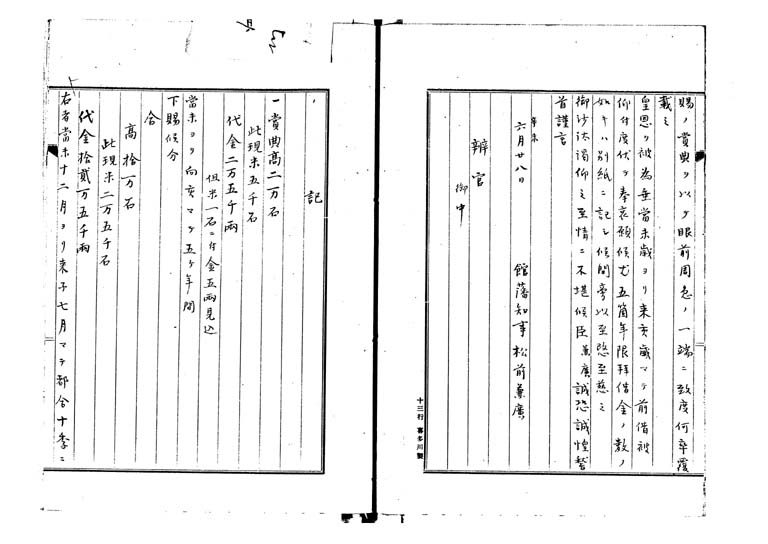 賜ノ賞典ヲ以テ眼前周急ノ一端ニ致度何卒覆
載之
皇恩ヲ被為垂當未歳ヨリ来亥歳マテ前借被
仰付度伏テ奉哀願候尤五箇年限拜借金ノ数ノ
如キハ別紙ニ記シ候間旁以至愍至慈之
御沙汰渇仰之至情ニ不堪候臣兼廣誠恐誠惶稽
首謹言
辛未
六月廿八日
館藩知事松前兼廣
辨官
御中
十三行 喜多川製
記
一賞典高二万石
此現米五千石
代金二万五千兩
但米一石ニ付金五兩見込
當未ヨリ向亥マテ五ケ年間
下賜候分
合
高拾万石
此現米二万五千石
代金拾貳万五千兩
右者當未十二月ヨリ来子七月マテ都合十季ニ